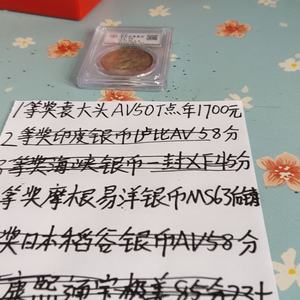 1等奖袁大头AV50T点年1700元
2等奖印度银币卢比AV58分
3等奖海峡银币一封XF45分
等奖摩根易洋银币MS63
奖日本稻谷银币AV58分
康熙通宝极美85分23